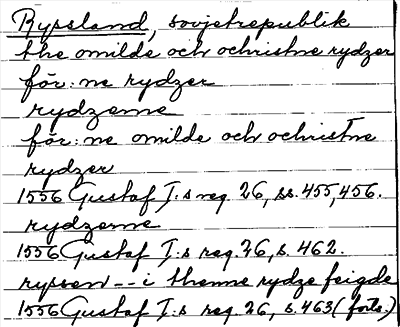 Ryssland, sovjetrepublik
the omilde och ochristne rydzer
för:ne rydzer
rydzerne
för:ne omilde och ochristne
rydzer
1556 Gustaf I:s reg. 26, ss. 455, 456.
rydzerne
1556 Gustaf I:s reg. 26, s. 462.
ryssen -- i thenne rydze feigde
1556 Gustaf I:s reg. 26, s. 463 (forts.)